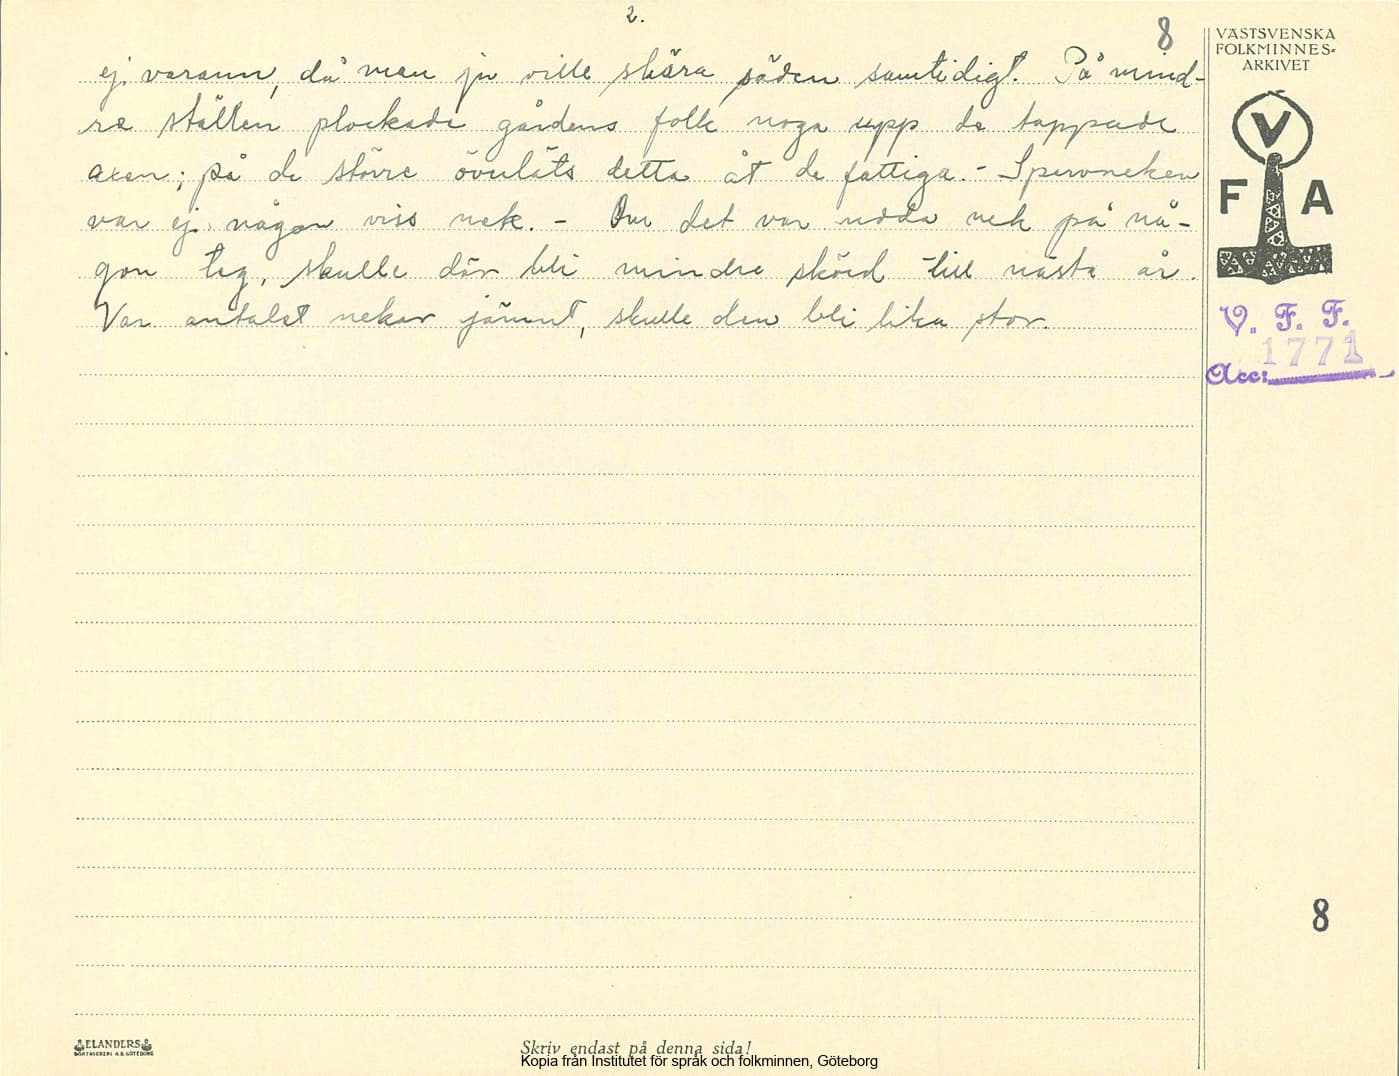 2.
8
ej varann, då man ju ville skära säden samtidigt. På mind-
re ställen plockade gårdens folk noga upp de tappade
axen; på de större överläts detta åt de fattiga. - Sparvneken
var ej någon viss nek. - Om det var udda nek på nå-
gon teg, skulle där bli mindre skörd till nästa år.
Var antalet nekar jämnt, skulle den bli lika stor.
VÄSTSVENSKA
FOLKMINNES-
ARKIVET
V
F A
V. F. F.
1771
Acc:
8
ELANDERS
BOKTRYCKERI A.B. GÖTEBORG
Skriv endast på denna sida!
Kopia från Institutet för språk och folkminnen, Göteborg